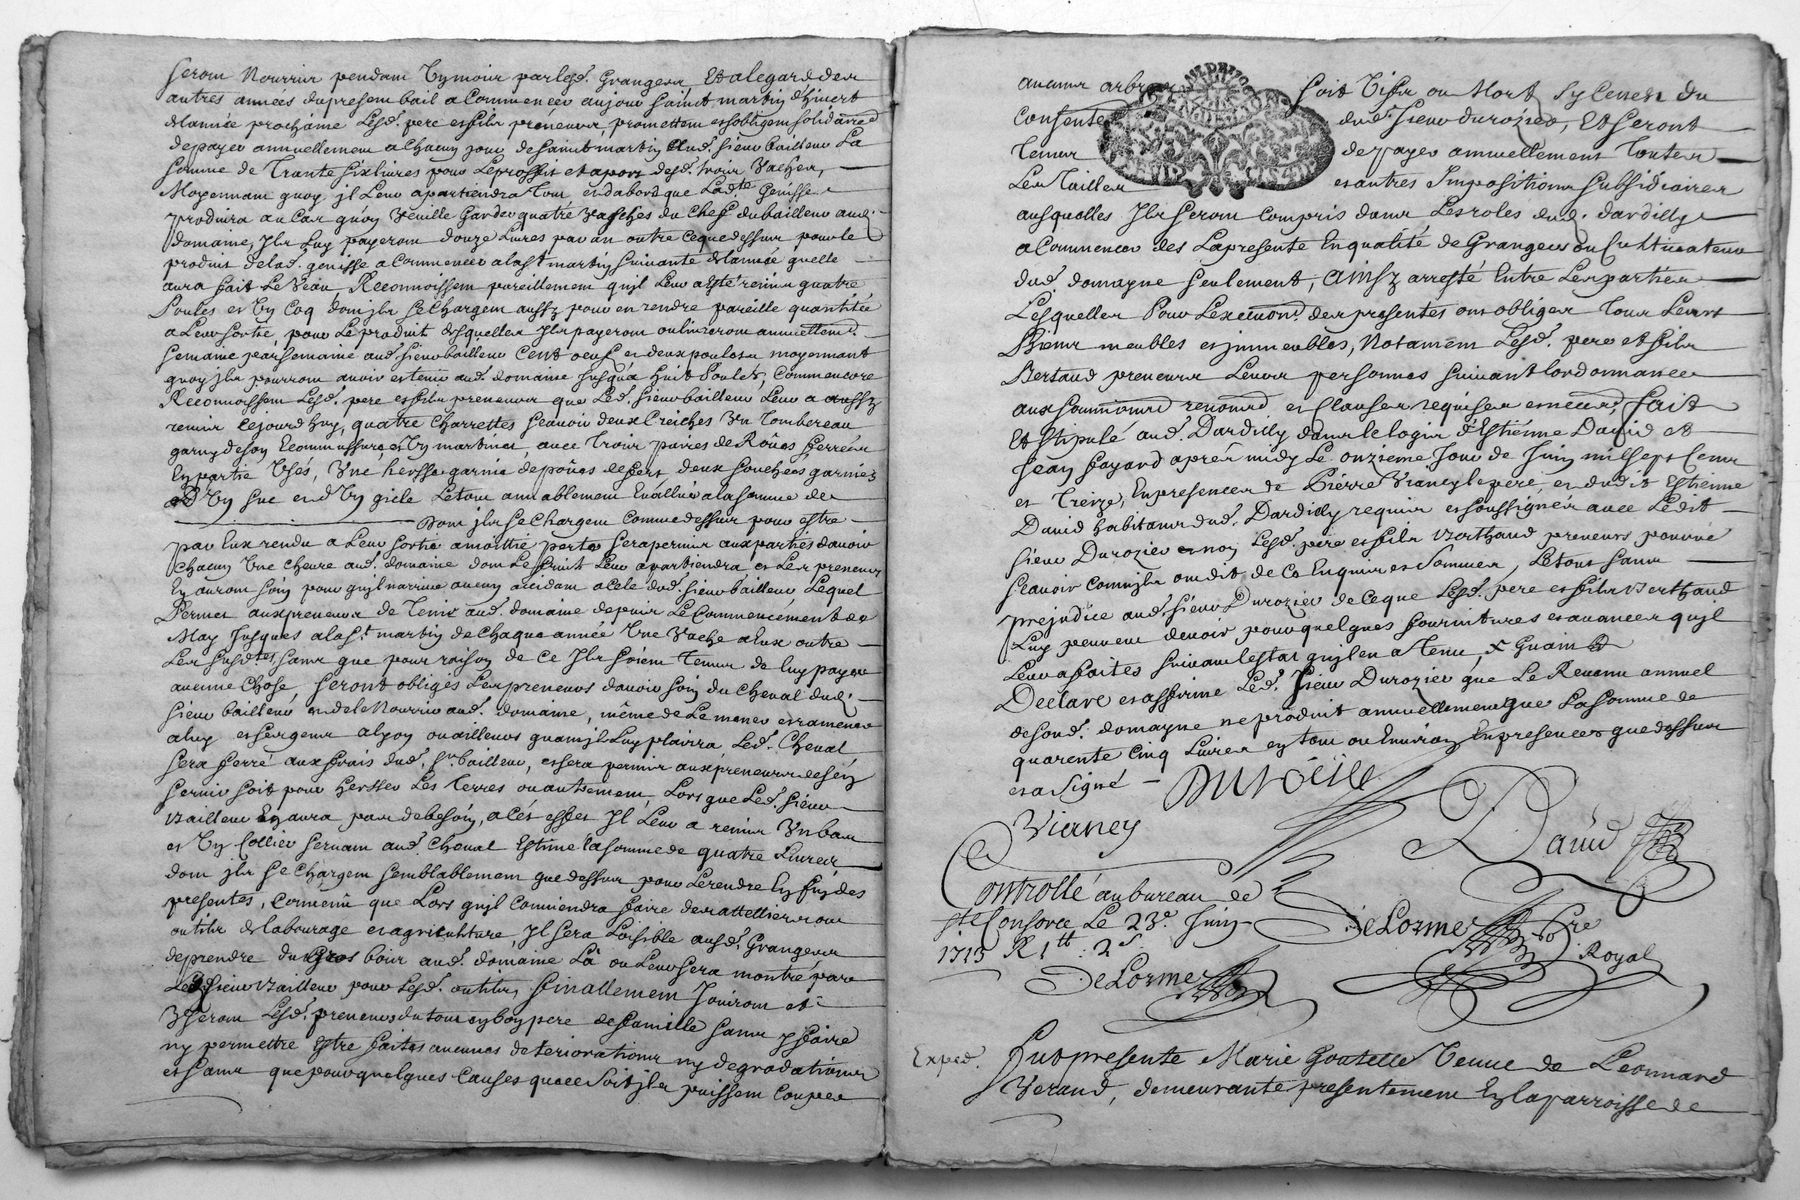 seront Nourris pendant Lymoir par lesd. Grangers Et alegard des
autres années dupresent bail a Commencer aujour sainct martin d'hivert
de lannée prochaine lesd. pere et fils preneurs, promettent et sobligent solidaire.
de payer annuellement a chacun jour de sainct martin aud. sieur bailleur La
somme de Trante six livres pour Leproffit et apors desd. trois Vaches,
Moyennant quoy jl Leur apartiendra tout, et dabord que Lad.te Genisse
produira au cas quoy Veuille Garder quatre Vasches du Chef dubailleur aud.
domaine, Jls Luy payeront douze Livres par an outre cequedessus pour le
produit delad. genisse a Commencer alast martin suivante de lannée quelle
aura fait Le Veau Reconnoissent pareillement quil Leur a esté remis quatre
Poules et Un Coq dont jls se chargent aussy pour en rendre pareille quantité
a Leur sortie, pour Le produit desquelles Jls payeront annuellement
semaine par semaine aud. sieur bailleur Cent oeufs et deux poulets moyennant
quoy jls pourront avoir et tenir aud. domaine jusqua huit Poules, Comme encore
Reconnoissent Lesd. pere et fils preneurs que Led. sieur bailleur Leur a
remis cejourdhuy, quatre Charrettes scavoir deux Creiches Un Tombereau
garny de son et Un martinet, avec Trois paires de Roües ferrées
En partie Usés, Une hersse garnie de de fert deux souchées garnies
Un suc et d'Un gicle Letout amiablement Evallüé alasomme de
dont jls se Chargent Comme dessus pour estre
par Eux rendu a Leur sortie a moittié perte sera permis aux parties davoir
Chacun Une Cheure aud. domaine dont Le fruit Leur apartiendra et Les preneurs
En auront soin pour quil narrive aucun accidant a cele dud. sieur bailleur Lequel
Permet aux preneurs de Tenir aud. domaine depuis Le Commencement de
May Jusques alast martin de Chaque année Une Vache a Eux outre
Les susd.tes, sans que pour raison de ce Jls soient Tenus de luy payer
aucune Chose, seront obligés Les preneurs davoir soin du Cheval dud.
sieur bailleur et de le Nourrir aud. domaine, même de Le mener et ramener
aluy et sergent alyon ou ailleurs quand jl Luy plairra, Led. Cheval
sera ferré aux frais dud. sr bailleur, et sera permis aux preneurs de sen
servir soit pour hersser Les Terres ou autrement, Lors que Led. sieur
bailleur En aura pas de besoin, a cet effet Jl Leur a remis Un bas
et Un Collier servant aud. Cheval Estimé la somme de quatre Livres
dont jls se Chargent semblablement que dessus pour Le rendre En fin des
presentes, Convenu que Lors quil Conviendra faire des attelliers ou
outils de labourage et agriculture, Jl sera Loisible ausd. Grangers
de prendre du Gros bois aud. domaine Là ou Leur sera montré par
Led. sieur bailleur pour Lesd. outils, finallement Jouiront et
Useront Lesd. preneurs du tout en bon pere de famille sans y faire
ny permettre Estre faites aucunes deteriorations ny degradations
et sans que pour quelques Causes que ce soit jls puissent Couper
aucuns arbres soit Vifs ou Mort sy Cenest du
consente dud. sieur durozier, Et seront
Tenus de payer annuellement Toutes
Les Tailles et autres Impositions subsidiaires
ausquelles Jls seront Compris dans Les roles dud. dardilly
a Commencer des Lapresente En qualité de Grangers ou Cultivateur
dud. domayne seulement, Ainsy arresté Entre Les parties
Lesquelles Pour Lexecuõn des presentes ont obliges Tous Leurs
Biens meubles et jmmeubles, Notament Lesd. pere et fils
Bertaud preneurs Leurs personnes suivant lordonnance
aux soumissions renond. et Clauses requises fait
Et stipulé aud. Dardilly dans le logis d'Estienne David et
Jean fayard apres midy Le onzieme Jour de Juin mil sept Cent
et Treize, En presences de Pierre Vianey le pere, et dudit Estienne
David habitans dud. Dardilly requis et soussignés avec Ledit
sieur Durozier et non Lesd. pere et fils Berthaud preneurs pour ne
scavoir comm jls ont dit de Ce Enquis et Sommes, Le tout sans
prejudice aud. sieur Durozier de ce que Lesd. pere et fils Berthaud
Luy peuvent devoir pour quelques fournitures et avances quil
Leur a faites suivant lestat quil en a Tenu, x
Declare et affirme Led. sieur Durozier que Le Revenu annuel
de sond. domayne ne produit annuellement que La somme de
quarente cinq Livres en tout ou Environ En presences que dessus
et a Signé
Vianey
David
Controllé au bureau de
ste Consorce Le 23e Juin
1713 R 1tt 2s
DeLorme
DeLorme Nore
Royal
Exped.
Fut presente Marie Goutelle Veuve de Leonnard
Veraud, demeurante presentement En la parroisse de